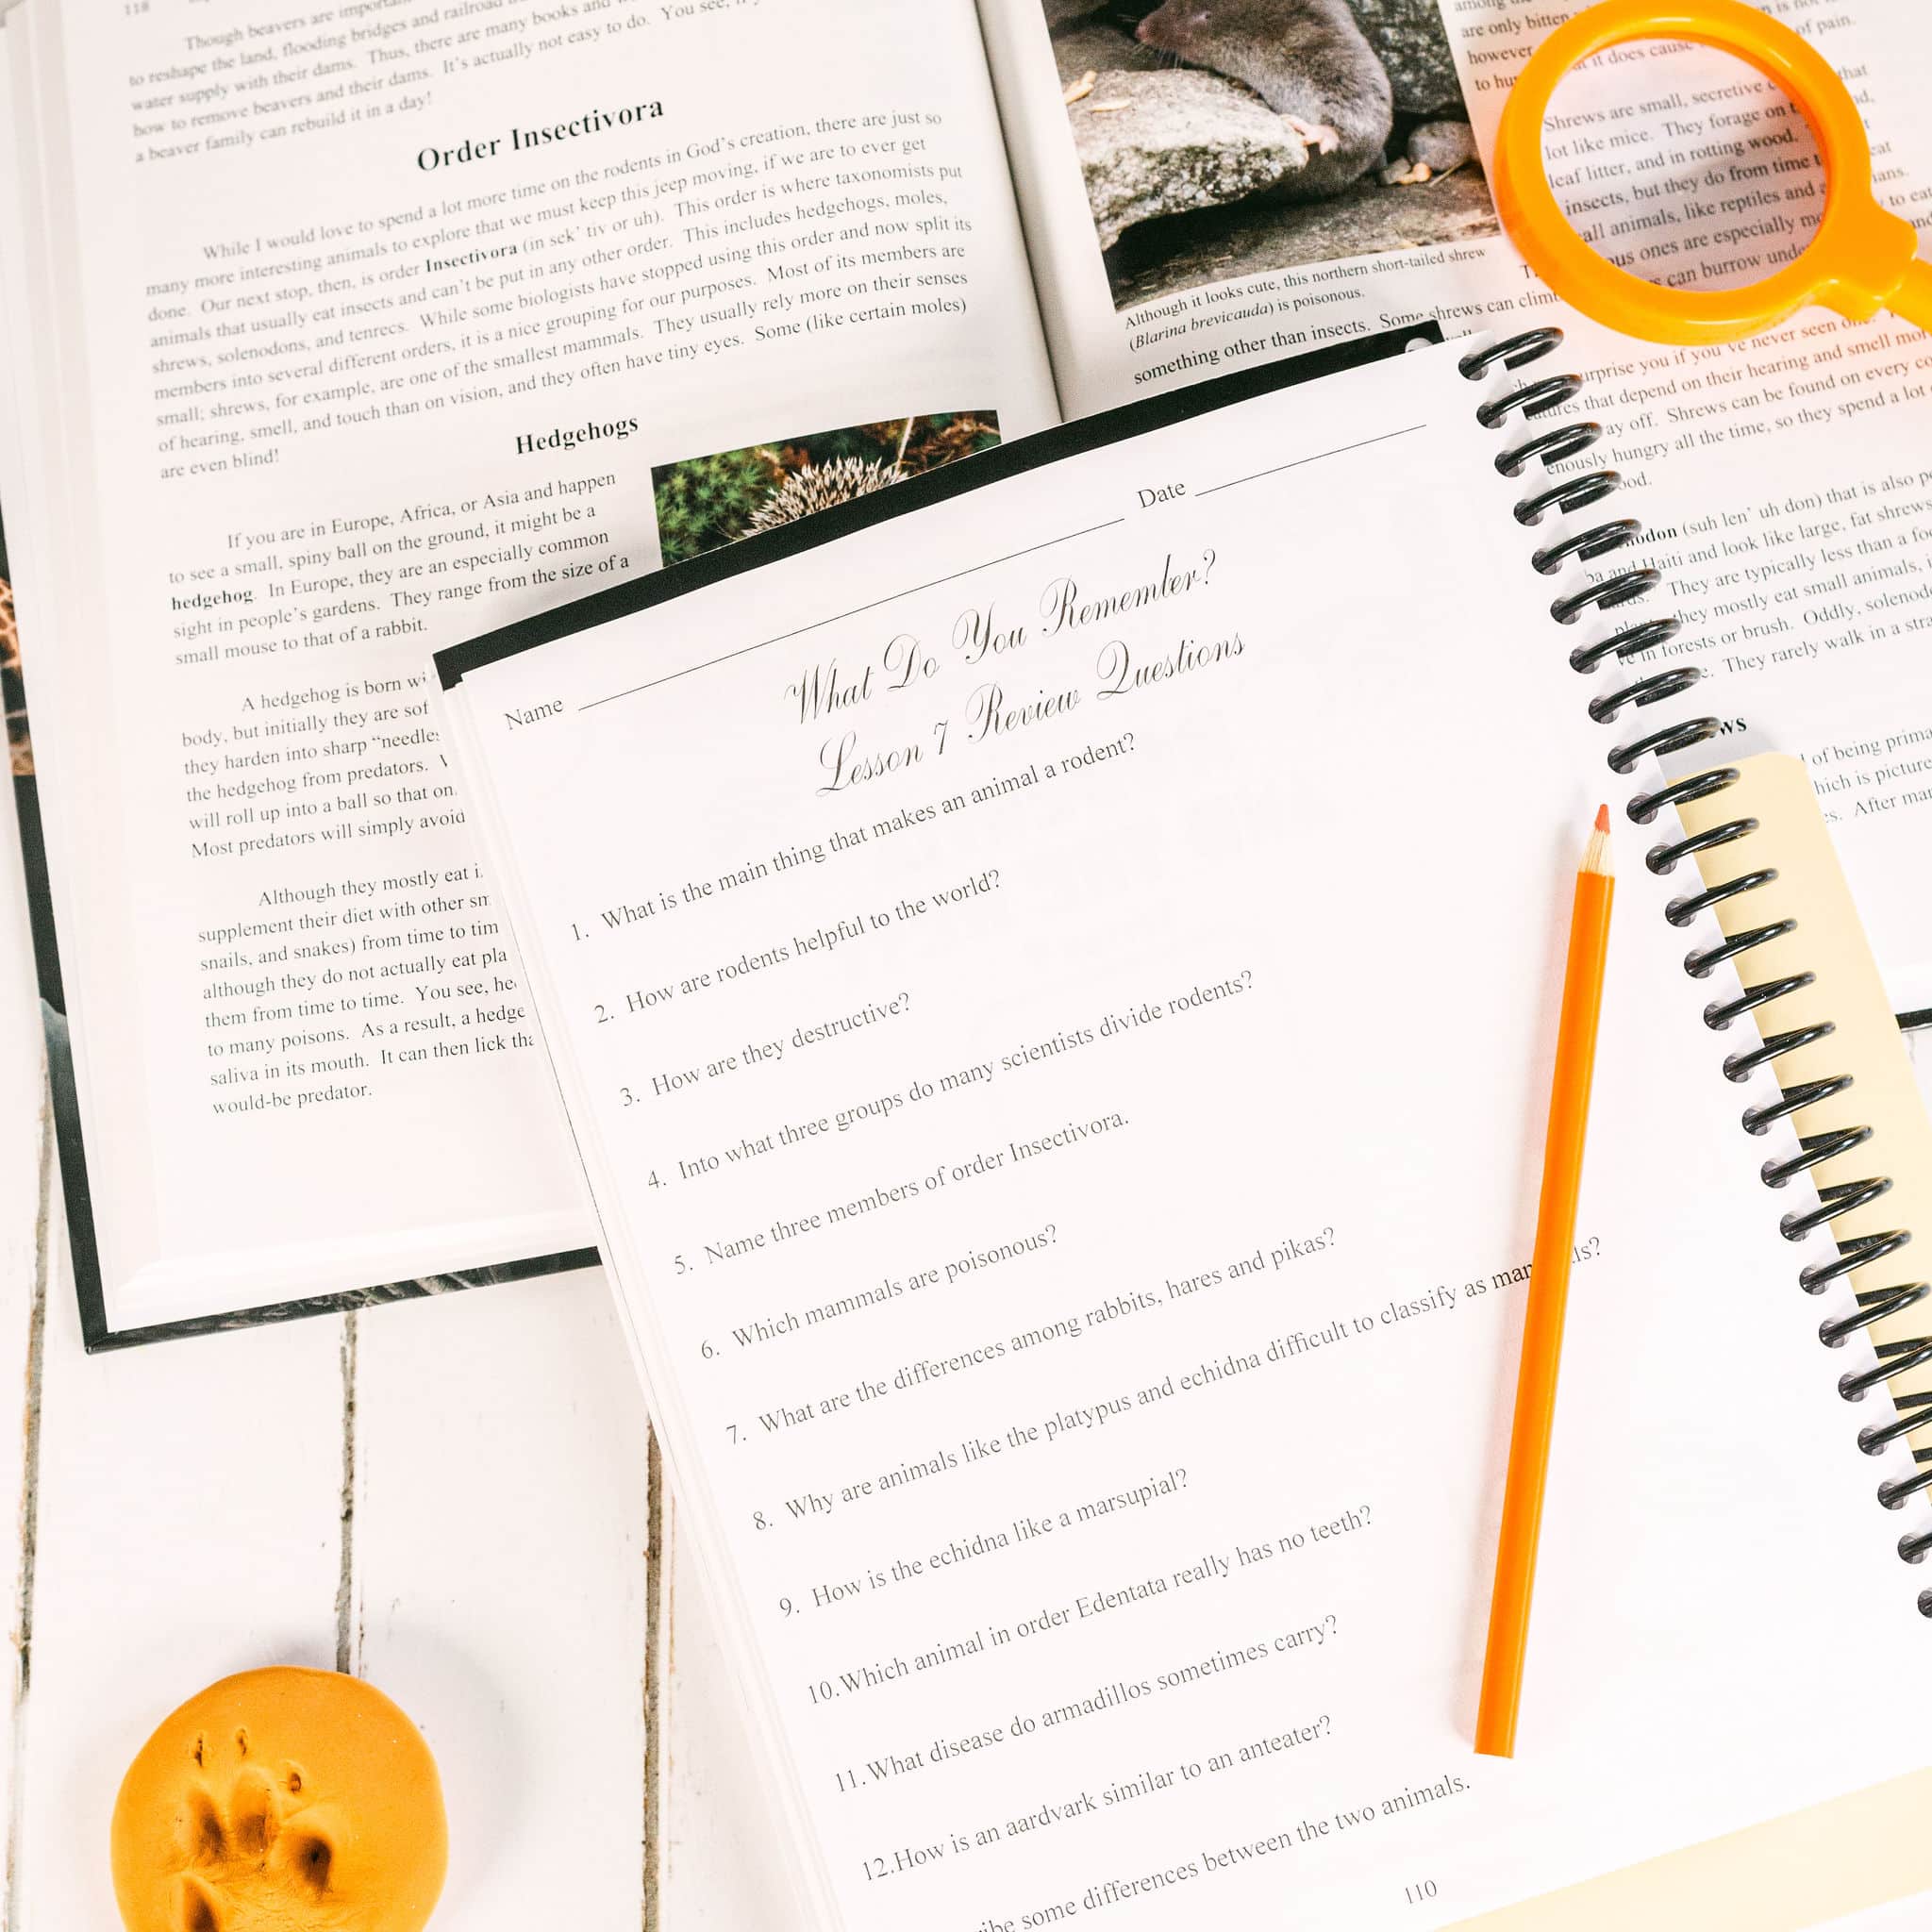 118
Though beavers are important
to reshape the land, flooding bridges and railroad
water supply with their dams. Thus, there are many books and
how to remove beavers and their dams. It's actually not easy to do. You see,
a beaver family can rebuild it in a day!
Order Insectivora
While I would love to spend a lot more time on the rodents in God's creation, there are just so
many more interesting animals to explore that we must keep this jeep moving, if we are to ever get
done. Our next stop, then, is order Insectivora (in sek' tiv or uh). This order is where taxonomists put
animals that usually eat insects and can't be put in any other order. This includes hedgehogs, moles,
shrews, solenodons, and tenrecs. While some biologists have stopped using this order and now split its
members into several different orders, it is a nice grouping for our purposes. Most of its members are
small; shrews, for example, are one of the smallest mammals. They usually rely more on their senses
of hearing, smell, and touch than on vision, and they often have tiny eyes. Some (like certain moles)
are even blind!
Hedgehogs
If you are in Europe, Africa, or Asia and happen
to see a small, spiny ball on the ground, it might be a
hedgehog. In Europe, they are an especially common
sight in people's gardens. They range from the size of a
small mouse to that of a rabbit.
A hedgehog is born wi
body, but initially they are sof
they harden into sharp "needles
the hedgehog from predators.
will roll up into a ball so that on
Most predators will simply avoid
Although they mostly eat i
supplement their diet with other sm
snails, and snakes) from time to tim
although they do not actually eat pla
them from time to time. You see, he
to many poisons. As a result, a hedge
saliva in its mouth. It can then lick tha
would-be predator.
among the
are only bitten
however it does cause of pain.
to hu
Shrews are small, secretive that
lot like mice. They forage on
leaf litter, and in rotting wood.
insects, but they do from time t eat
all animals, like reptiles and
ous ones are especially mo to eat
can burrow unde and
Although it looks cute, this northern short-tailed shrew
(Blarina brevicauda) is poisonous.
something other than insects. Some shrews can climb
surprise you if you've never seen one.
atures that depend on their hearing and smell mor
ay off. Shrews can be found on every co
enously hungry all the time, so they spend a lot
ood.
nodon (suh len' uh don) that is also po
ba and Haiti and look like large, fat shrews
They are typically less than a foo
they mostly eat small animals, i
ve in forests or brush. Oddly, solenodo
They rarely walk in a stra
ws
of being prima
hich is picture
es. After man
Name Date
What Do You Remember?
Lesson 7 Review Questions
1. What is the main thing that makes an animal a rodent?
2. How are rodents helpful to the world?
3. How are they destructive?
4. Into what three groups do many scientists divide rodents?
5. Name three members of order Insectivora.
6. Which mammals are poisonous?
7. What are the differences among rabbits, hares and pikas?
8. Why are animals like the platypus and echidna difficult to classify as mammals?
9. How is the echidna like a marsupial?
10.Which animal in order Edentata really has no teeth?
11.What disease do armadillos sometimes carry?
12.How is an aardvark similar to an anteater?
ibe some differences between the two animals.
110